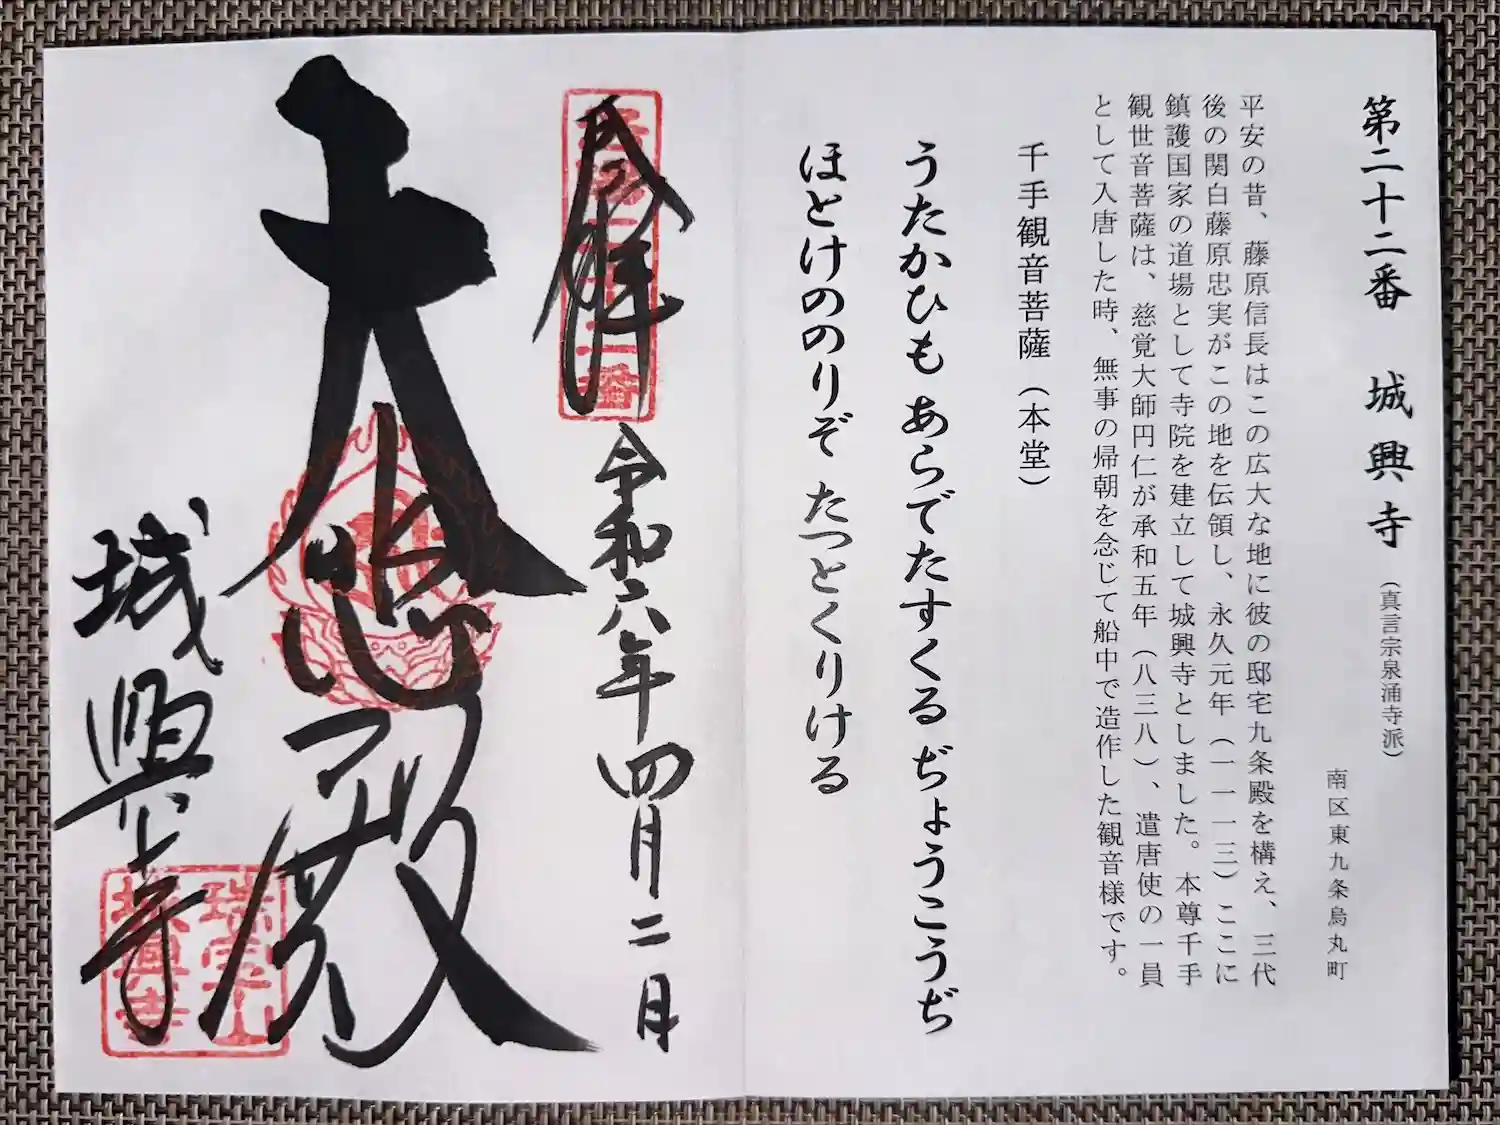 第二十二番 城興寺 (真言宗泉涌寺派)
南区東九条烏丸町
平安の昔、藤原信長はこの広大な地に彼の邸宅九条殿を構え、三代
後の関白藤原忠実がこの地を伝領し、永久元年(一一一三)ここに
鎮護国家の道場として寺院を建立して城興寺としました。本尊千手
観世音菩薩は、慈覚大師円仁が承和五年(八三八)、遣唐使の一員
として入唐した時、無事の帰朝を念じて船中で造作した観音様です。
千手観音菩薩(本堂)
うたかひも あらでたすくる ぢょうこうぢ
ほとけののりぞ たっとくりける
奉拝
令和六年四月二日
大悲殿
城興寺
瑞宝山
城興寺